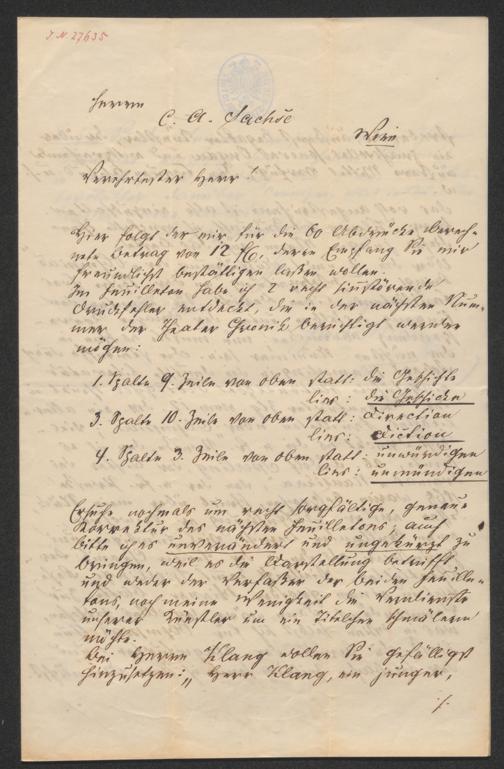 J. N. 27635
Herrn
C. A. Sachse
Wien
Verehrtester Herr!
Hier folgt der mir für die 60 Abdrücke berech-
nete Betrag von 12 f ö, deren Empfang Sie mir
freundlichst bestättigen laßen wollen.
Im Feuilleton habe ich 2 recht sinstörende
Druckfehler entdeckt, die in der nächsten Num-
mer der Theater Chronik berichtigt werden
mögen:
1. Spalte 9. Zeile von oben statt: die Geschichte
lies: die Geschicke
3. Spalte 10. Zeile von oben statt: Direction
lies: Diction
4. Spalte 3. Zeile von oben statt: unwürdigen
lies: unmündigen
Ersuche nochmals um recht sorgfältige, genaue
Korrektur des nächsten Feuilletons, auch
bitte ich es unverändert und ungekürzt zu
bringen, weil es die Darstellung betrifft
und weder der Verfaßer der beiden Feuille-
tons, noch meine Wenigkeit die Verdienste
unserer Künstler um ein Titelchen schmälern
möchte.
Bei Herrn Klang wollen Sie gefälligst
hinzusetzen: „Herr Klang, ein junger,
./.